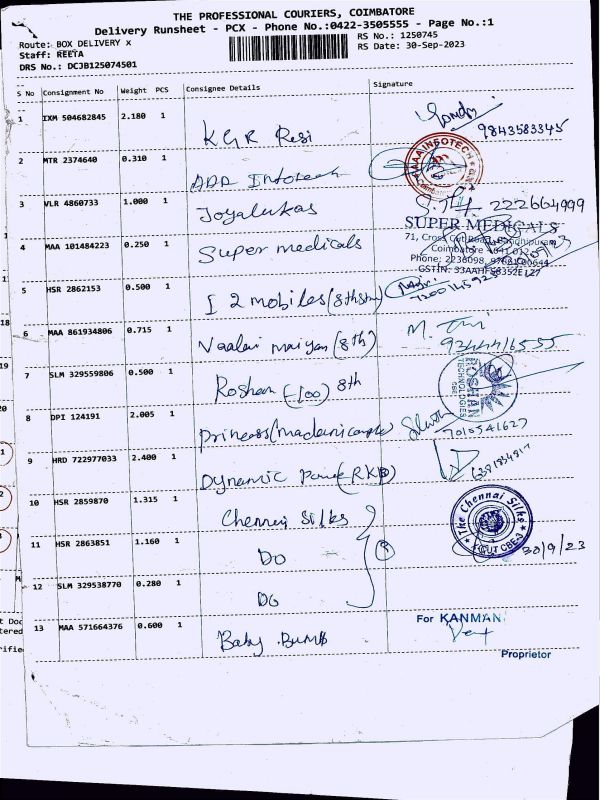 THE PROFESSIONAL COURIERS, COIMBATORE
Delivery Runsheet - PCX - Phone No.:0422-3505555 - Page No.:1
Route: BOX DELIVERY x
RS No.: 1250745
Staff: REETA
RS Date: 30-Sep-2023
DRS No.: DCJB125074501
S No Consignment No Weight PCS Consignee Details Signature
1 IXM 504682845 2.180 1 KGR Resi 9843583345
2 MTR 2374640 0.310 1 Infotech
AAA INFOTECH
3 VLR 4860733 1.000 1 Joyalukas 222664999
4 MAA 101484223 0.250 1 Super medicals
SUPER MEDICALS
71, Cross Cut Road, Gandhipuram,
Coimbatore - 641 012
Phone: 2236098,
GSTIN: 33AAHFS8352E1Z7
5 HSR 2862153 0.500 1 I 2 mobiles (8th
6 MAA 861934806 0.715 1 (8th)
7 SLM 329559806 0.500 1 Roshan (-100) 8th
ROSHAN TECHNOLOGIES
8 DPI 124191 2.005 1 Princess 7010541627
9 HRD 722977033 2.400 1 Dynamic
10 HSR 2859870 1.315 1 Chennai Silks
The Chennai Silks
X CUT CBE-3
30/9/23
11 HSR 2863851 1.160 1 Do
12 SLM 329538770 0.280 1 Do
13 MAA 571664376 0.600 1 Baby Bumb
For KANMANI
Proprietor